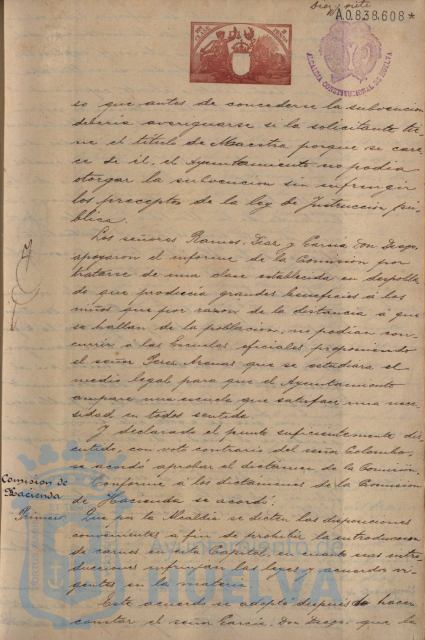 Diez y siete
A.0.838.608*
ALCALDIA CONSTITUCIONAL DE HUELVA
so que antes de concederse la subvencion
deberia averiguarse si la solicitante tie-
ne el título de Maestra porque se care-
ce de él, el Ayuntamiento no podia
otorgar la subvencion sin infringir
los preceptos de la ley de Instrucción pú-
blica.
Los señores Ramos, Diaz y García Don Diego,
apoyaron el informe de la Comision por
tratarse de una clase establecida en despobla-
do que produciria grandes beneficios á los
niños que por razon de la distancia á que
se hallan de la poblacion, no podian con-
currir á las Escuelas oficiales proponiendo
el señor Perez Arenas que se estudiara el
medio legal para que el Ayuntamiento
ampare una escuela que satisface una nece-
sidad en todos sentidos.
Y declarado el punto suficientemente dis-
cutido, con voto contrario del señor Colombo,
se acordó aprobar el dictamen de la Comision.
Comision de
Hacienda
Conforme á los dictamenes de la Comision
de Hacienda se acordó:
Primero. Que por la Alcaldía se dicten las disposiciones
convenientes á fin de prohibir la introduccion
de carnes en esta Capital, cuando esas intro-
ducciones infrinjan las leyes y acuerdos vi-
gentes en la materia.
Este acuerdo se adoptó despues de hacer
constar el señor García, Don Diego, que la
Ayuntamiento de
HUELVA